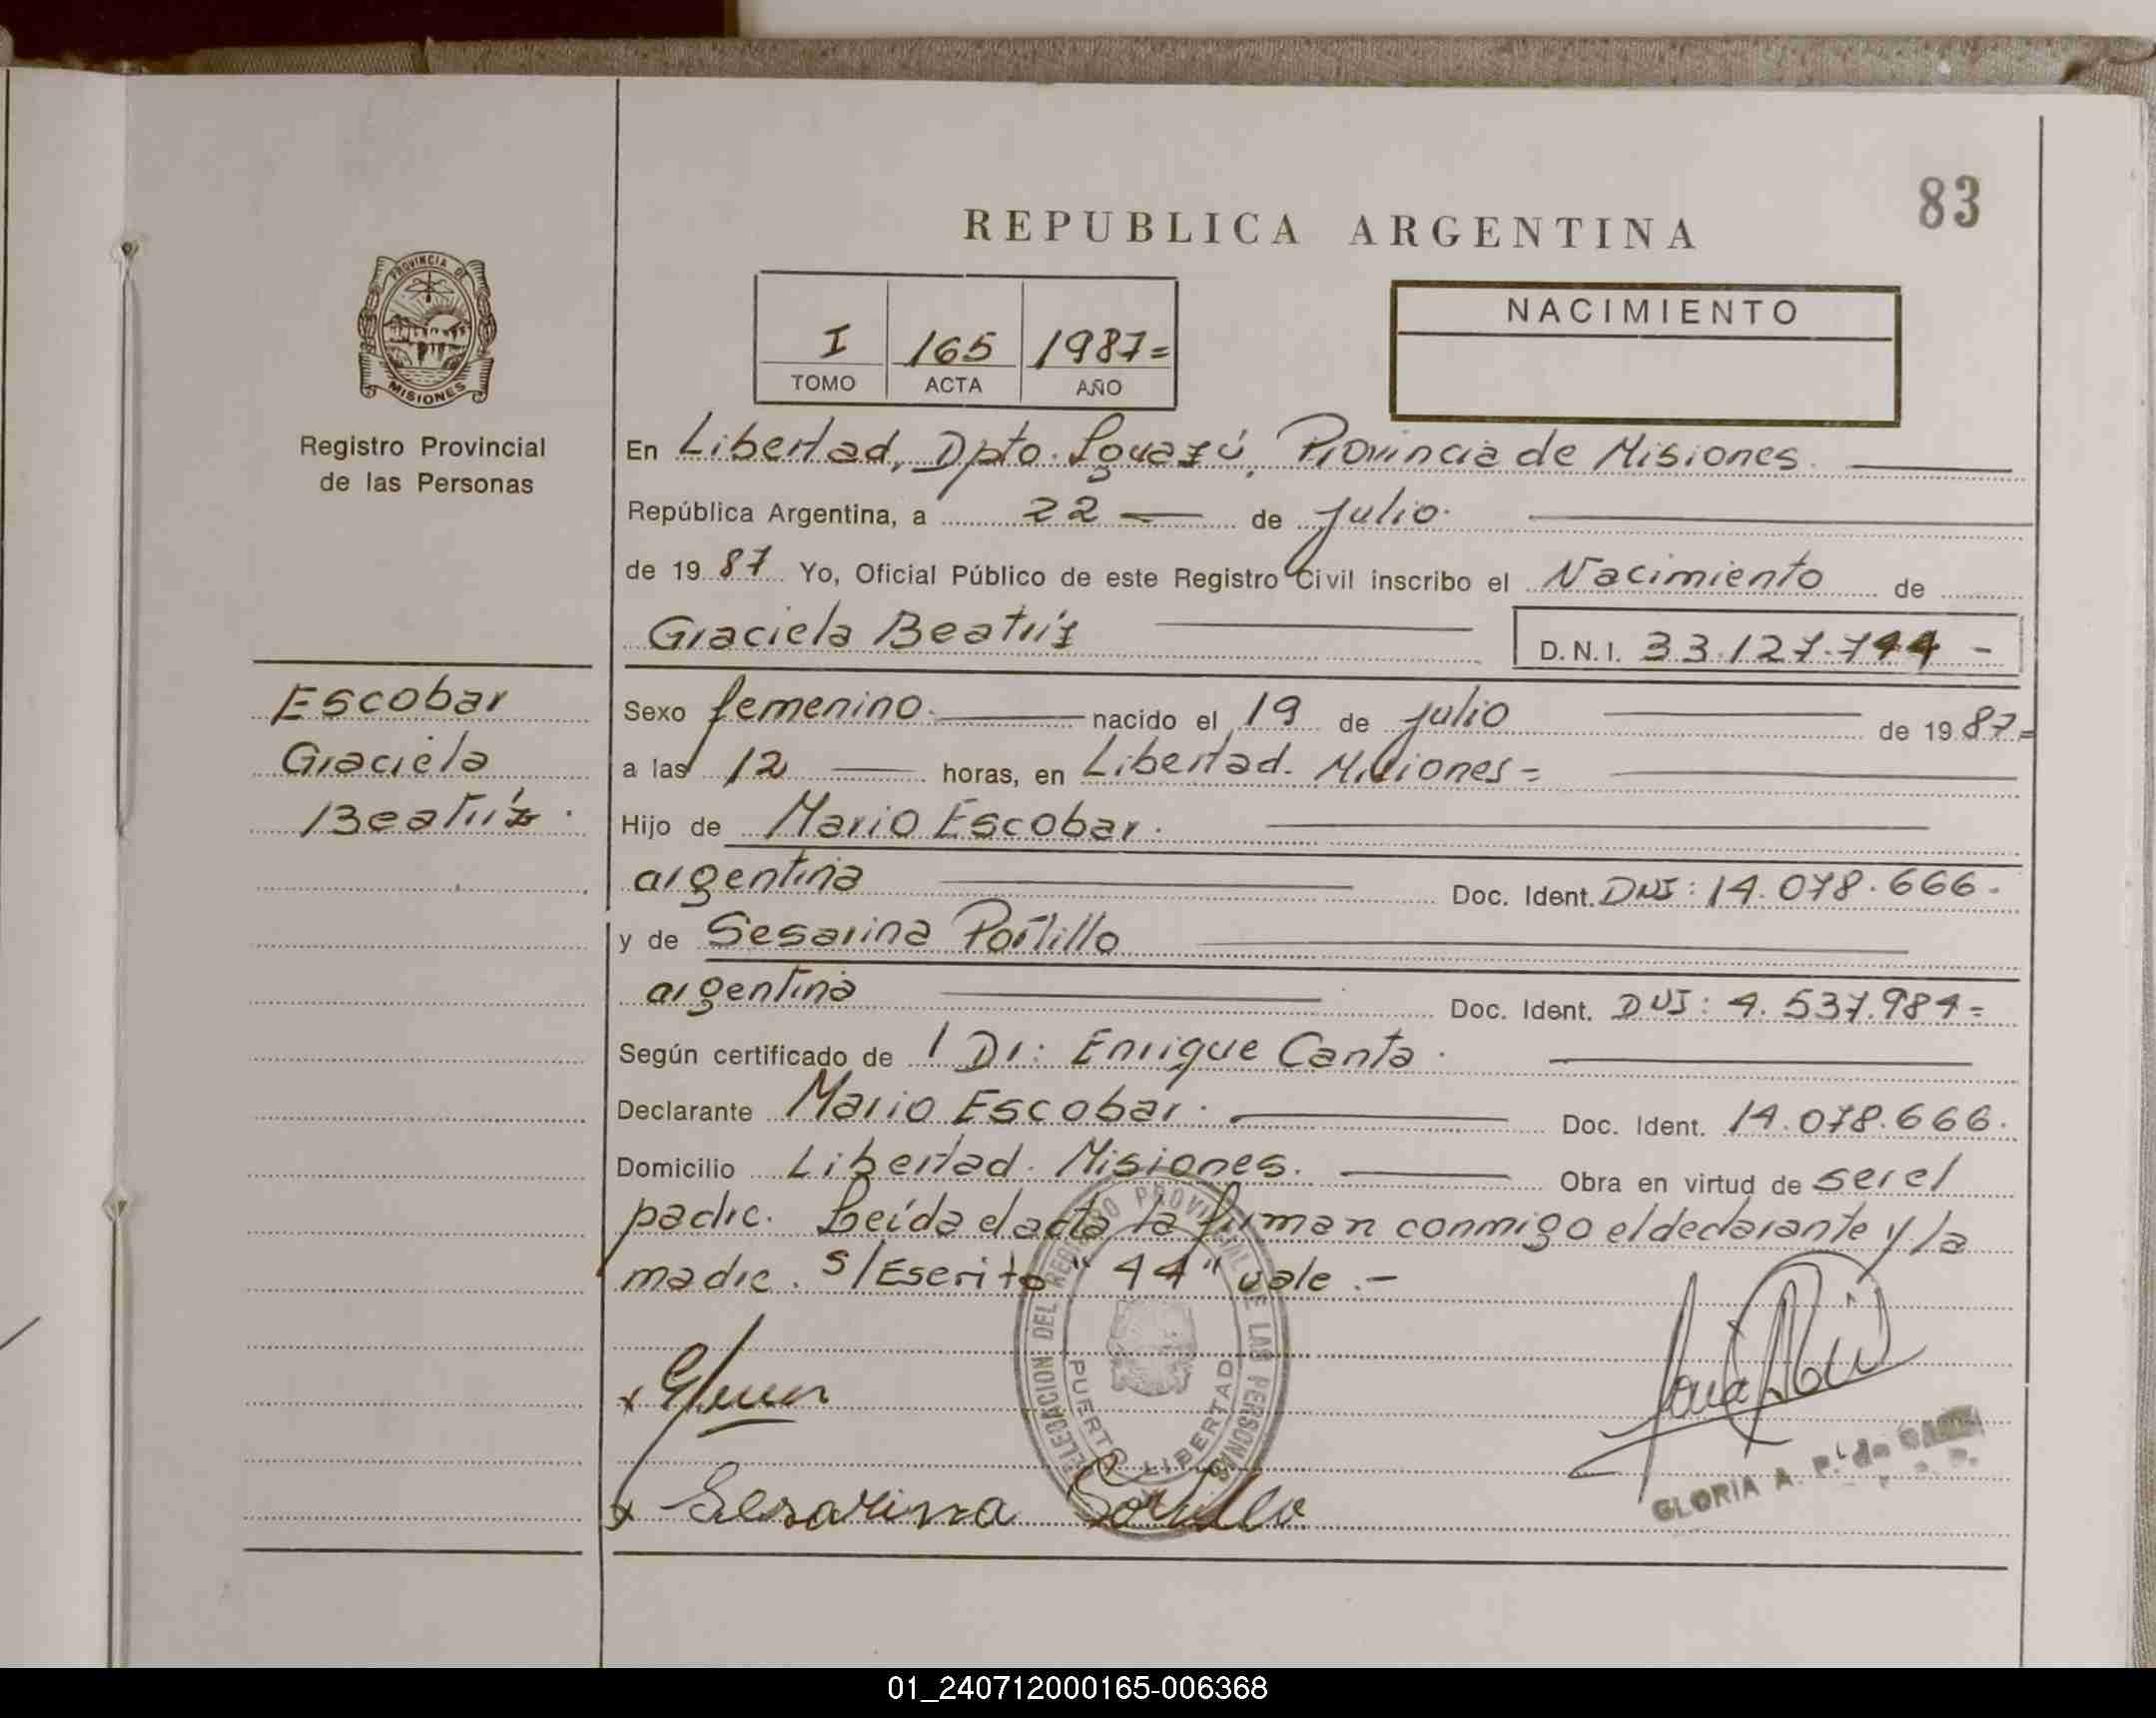 83
REPUBLICA ARGENTINA
PROVINCIA DE
MISIONES
Registro Provincial
de las Personas
I 165 1987=
TOMO ACTA AÑO
NACIMIENTO
En Libertad, Dpto. Iguazú, Provincia de Misiones.
República Argentina, a 22 de Julio.
de 1987 Yo, Oficial Público de este Registro Civil inscribo el Nacimiento de
Graciela Beatríz D.N.I. 33.127.744 -
Escobar
Graciela
Beatríz.
Sexo femenino. nacido el 19 de Julio de 1987=
a las 12 horas, en Libertad. Misiones=
Hijo de Mario Escobar.
argentina Doc. Ident. DNI: 14.078.666.
y de Sesarina Portillo
argentina Doc. Ident. DNI: 4.537.984=
Según certificado de Dr: Enrique Canta.
Declarante Mario Escobar. Doc. Ident. 14.078.666.
Domicilio Libertad. Misiones. Obra en virtud de ser el
padre. Leída el acta la firman conmigo el declarante y la
madre. s/Escrito "44" vale.-
DELEGACION DEL REGISTRO PROVINCIAL DE LAS PERSONAS
PUERTO LIBERTAD
x
x Sesarina Portillo
GLORIA A. P. de
01_240712000165-006368